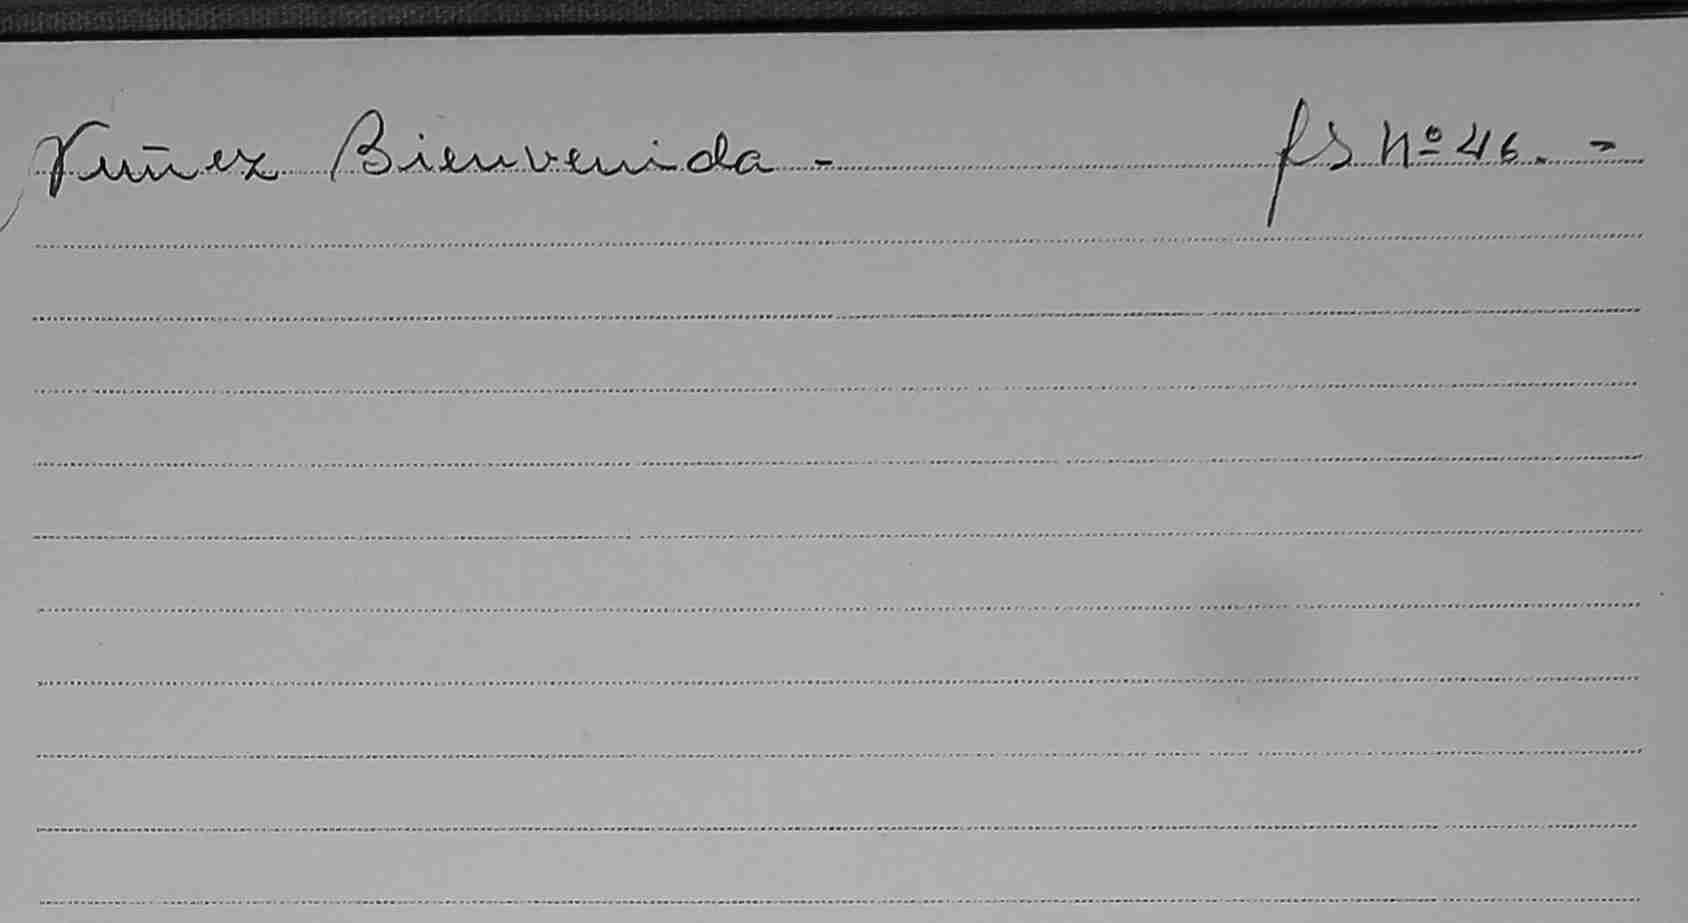 Nuñez Bienvenida - fs Nº 46. -